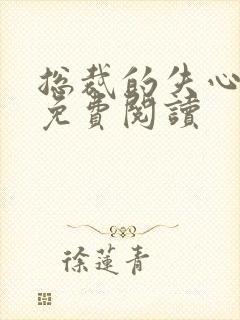 總裁的失心
免費閱讀
徐蓮青